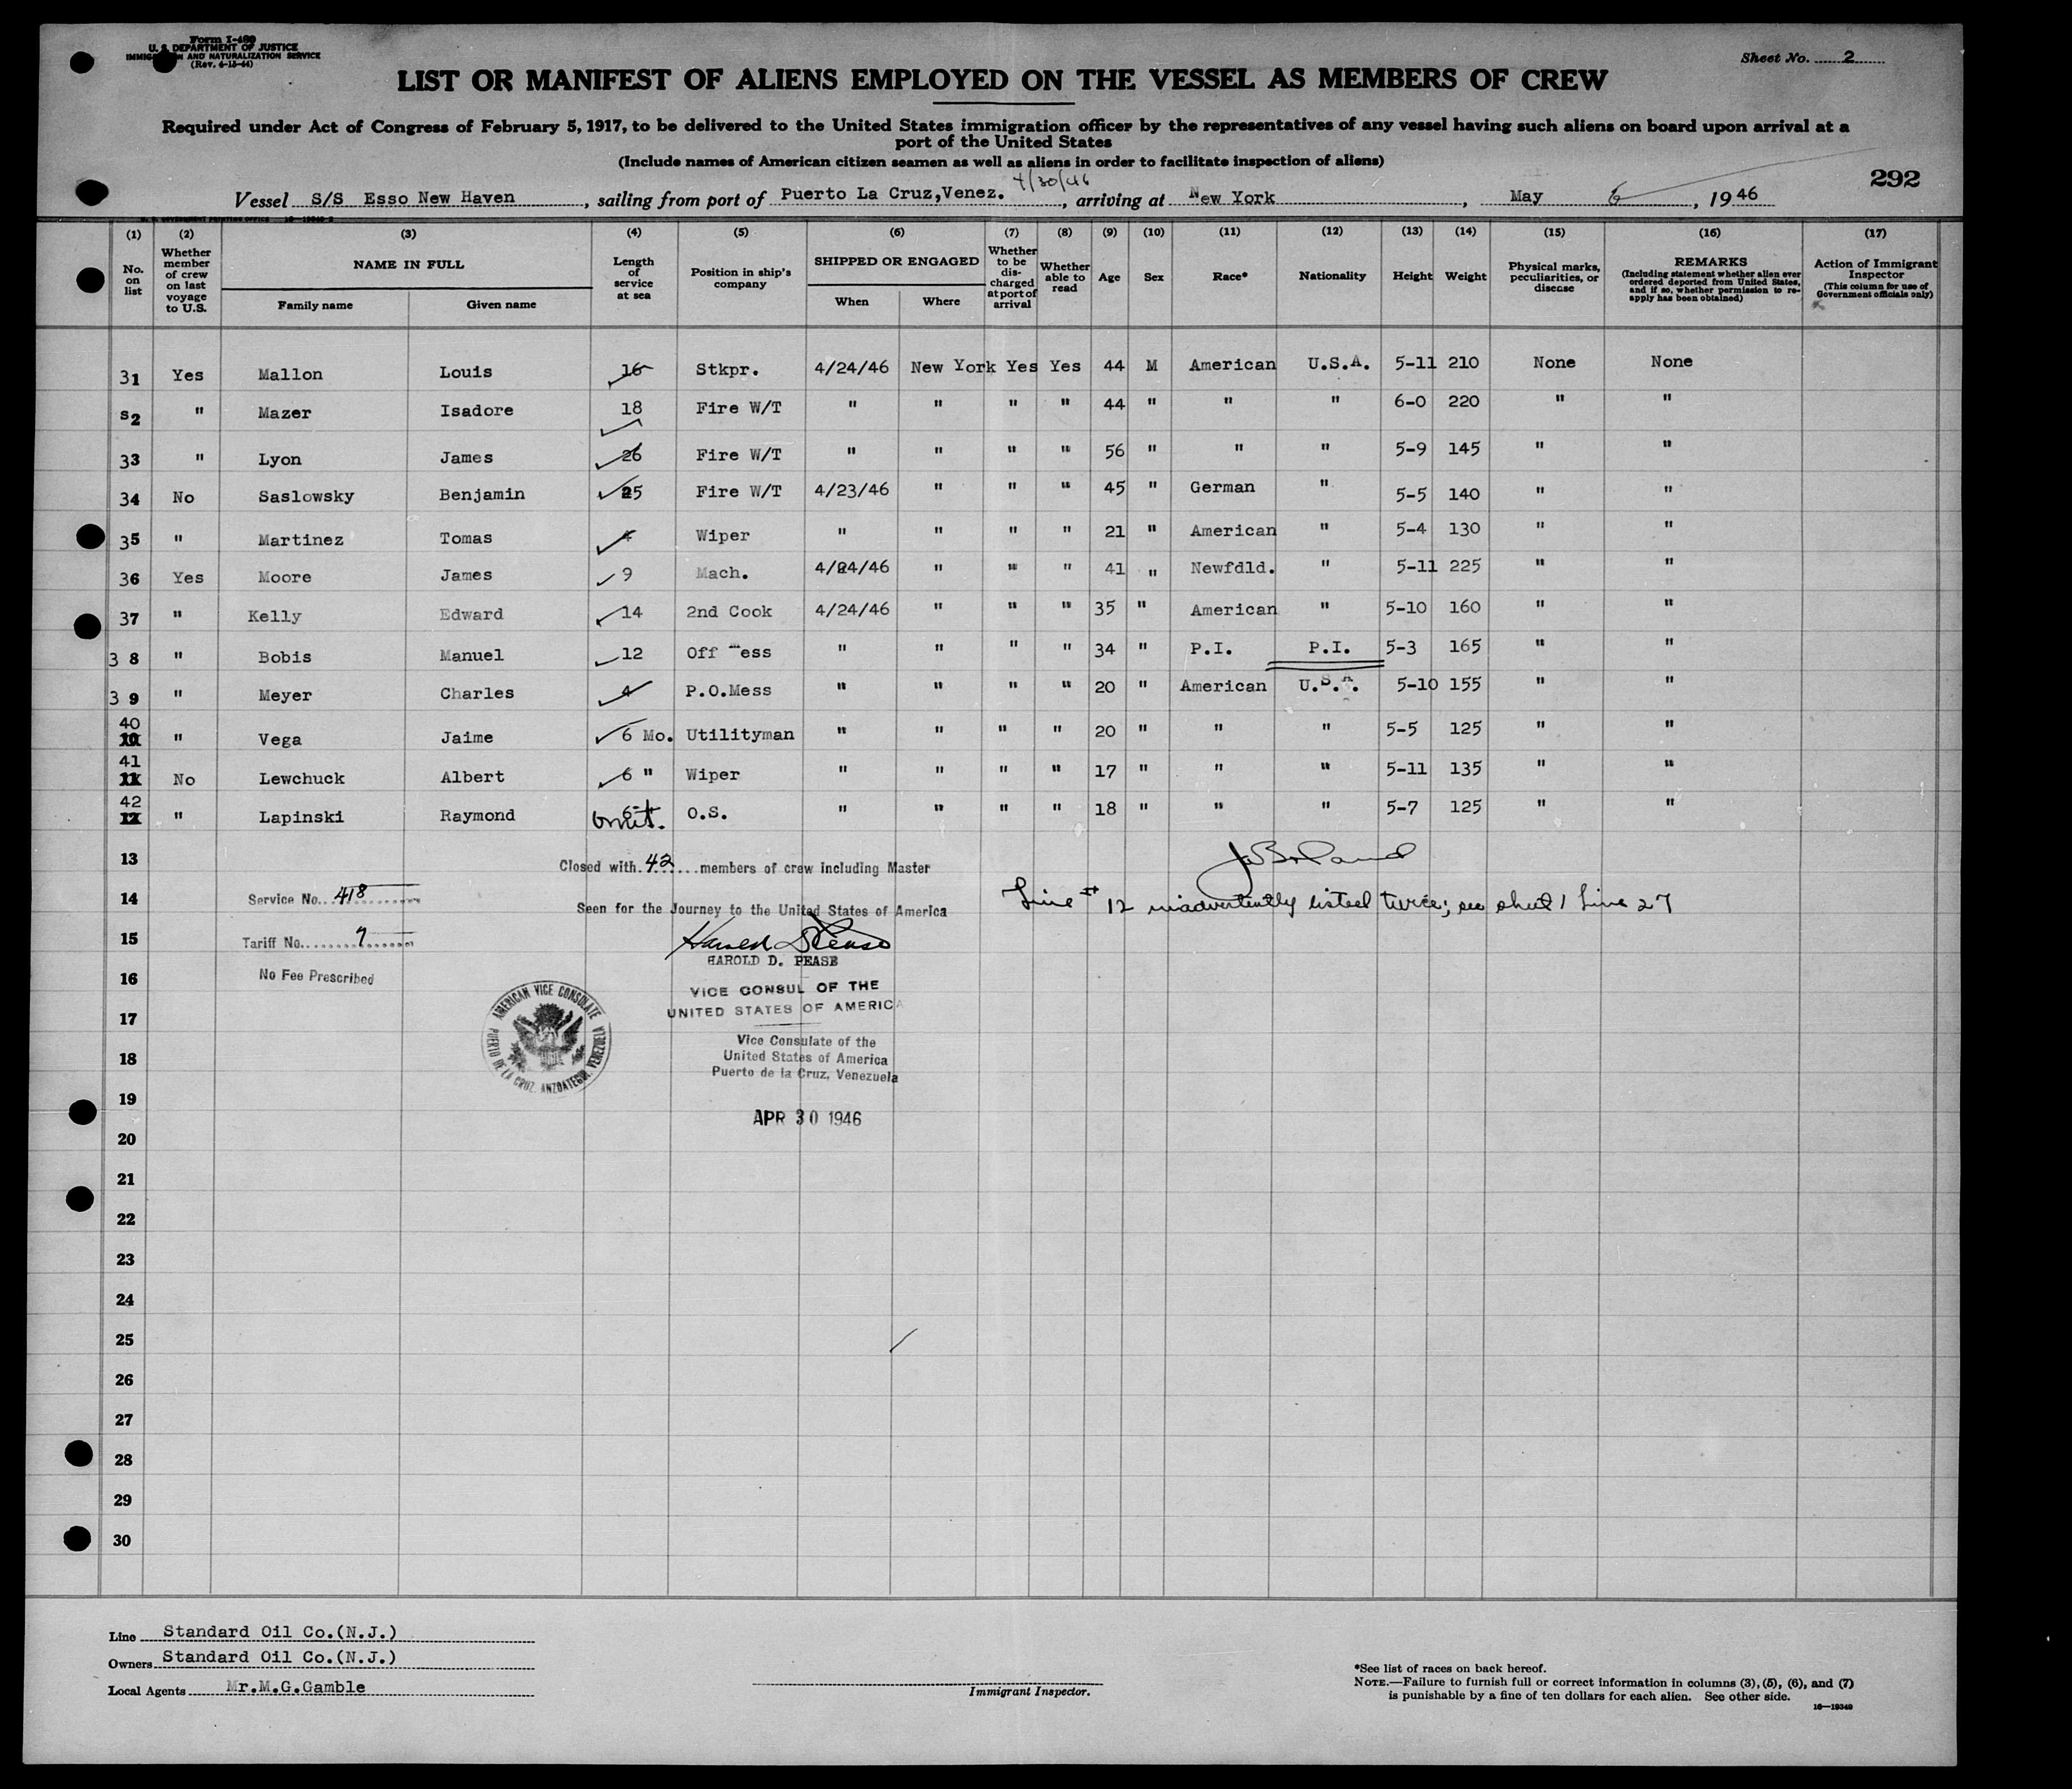 Form I-480
U. S. DEPARTMENT OF JUSTICE
IMMIGRATION AND NATURALIZATION SERVICE
(Rev. 4-15-44)
Sheet No. 2
LIST OR MANIFEST OF ALIENS EMPLOYED ON THE VESSEL AS MEMBERS OF CREW
Required under Act of Congress of February 5, 1917, to be delivered to the United States immigration officer by the representatives of any vessel having such aliens on board upon arrival at a
port of the United States
(Include names of American citizen seamen as well as aliens in order to facilitate inspection of aliens)
292
4/30/46
Vessel S/S Esso New Haven, sailing from port of Puerto La Cruz,Venez., arriving at New York, May 6, 1946
(1) (2) (3) (4) (5) (6) (7) (8) (9) (10) (11) (12) (13) (14) (15) (16) (17)
No. on list
Whether member of crew on last voyage to U.S.
NAME IN FULL
Family name Given name
Length of service at sea
Position in ship's company
SHIPPED OR ENGAGED
When Where
Whether to be discharged at port of arrival
Whether able to read
Age
Sex
Race*
Nationality
Height
Weight
Physical marks, peculiarities, or disease
REMARKS
(Including statement whether alien ever ordered deported from United States, and if so, whether permission to reapply has been obtained)
Action of Immigrant Inspector
(This column for use of Government officials only)
31 Yes Mallon Louis 16 Stkpr. 4/24/46 New York Yes Yes 44 M American U.S.A. 5-11 210 None None
s2 " Mazer Isadore 18 Fire W/T " " " " 44 " " " 6-0 220 " "
33 " Lyon James 26 Fire W/T " " " " 56 " " " 5-9 145 " "
34 No Saslowsky Benjamin 25 Fire W/T 4/23/46 " " " 45 " German " 5-5 140 " "
35 " Martinez Tomas 4 Wiper " " " " 21 " American " 5-4 130 " "
36 Yes Moore James 9 Mach. 4/24/46 " " " 41 " Newfdld. " 5-11 225 " "
37 " Kelly Edward 14 2nd Cook 4/24/46 " " " 35 " American " 5-10 160 " "
3 8 " Bobis Manuel 12 Off Mess " " " " 34 " P.I. P.I. 5-3 165 " "
3 9 " Meyer Charles 4 P.O.Mess " " " " 20 " American U.S.A. 5-10 155 " "
40 " Vega Jaime 6 Mo. Utilityman " " " " 20 " " " 5-5 125 " "
41 No Lewchuck Albert 6 " Wiper " " " " 17 " " " 5-11 135 " "
42 " Lapinski Raymond omit. O.S. " " " " 18 " " " 5-7 125 " "
13
Closed with 42 members of crew including Master
14
Service No. 418
Seen for the Journey to the United States of America
Line # 12 inadvertently listed twice; see sheet 1 Line 27
15
Tariff No. 7
HAROLD D. PEASE
16
No Fee Prescribed
VICE CONSUL OF THE
UNITED STATES OF AMERICA
AMERICAN VICE CONSULATE
PUERTO DE LA CRUZ, ANZOATEGUI, VENEZUELA
17
Vice Consulate of the
United States of America
Puerto de la Cruz, Venezuela
18
19
APR 30 1946
20
21
22
23
24
25
26
27
28
29
30
Line Standard Oil Co.(N.J.)
Owners Standard Oil Co.(N.J.)
Local Agents Mr.M.G.Gamble
Immigrant Inspector.
*See list of races on back hereof.
NOTE.—Failure to furnish full or correct information in columns (3), (5), (6), and (7)
is punishable by a fine of ten dollars for each alien. See other side.
16—19349